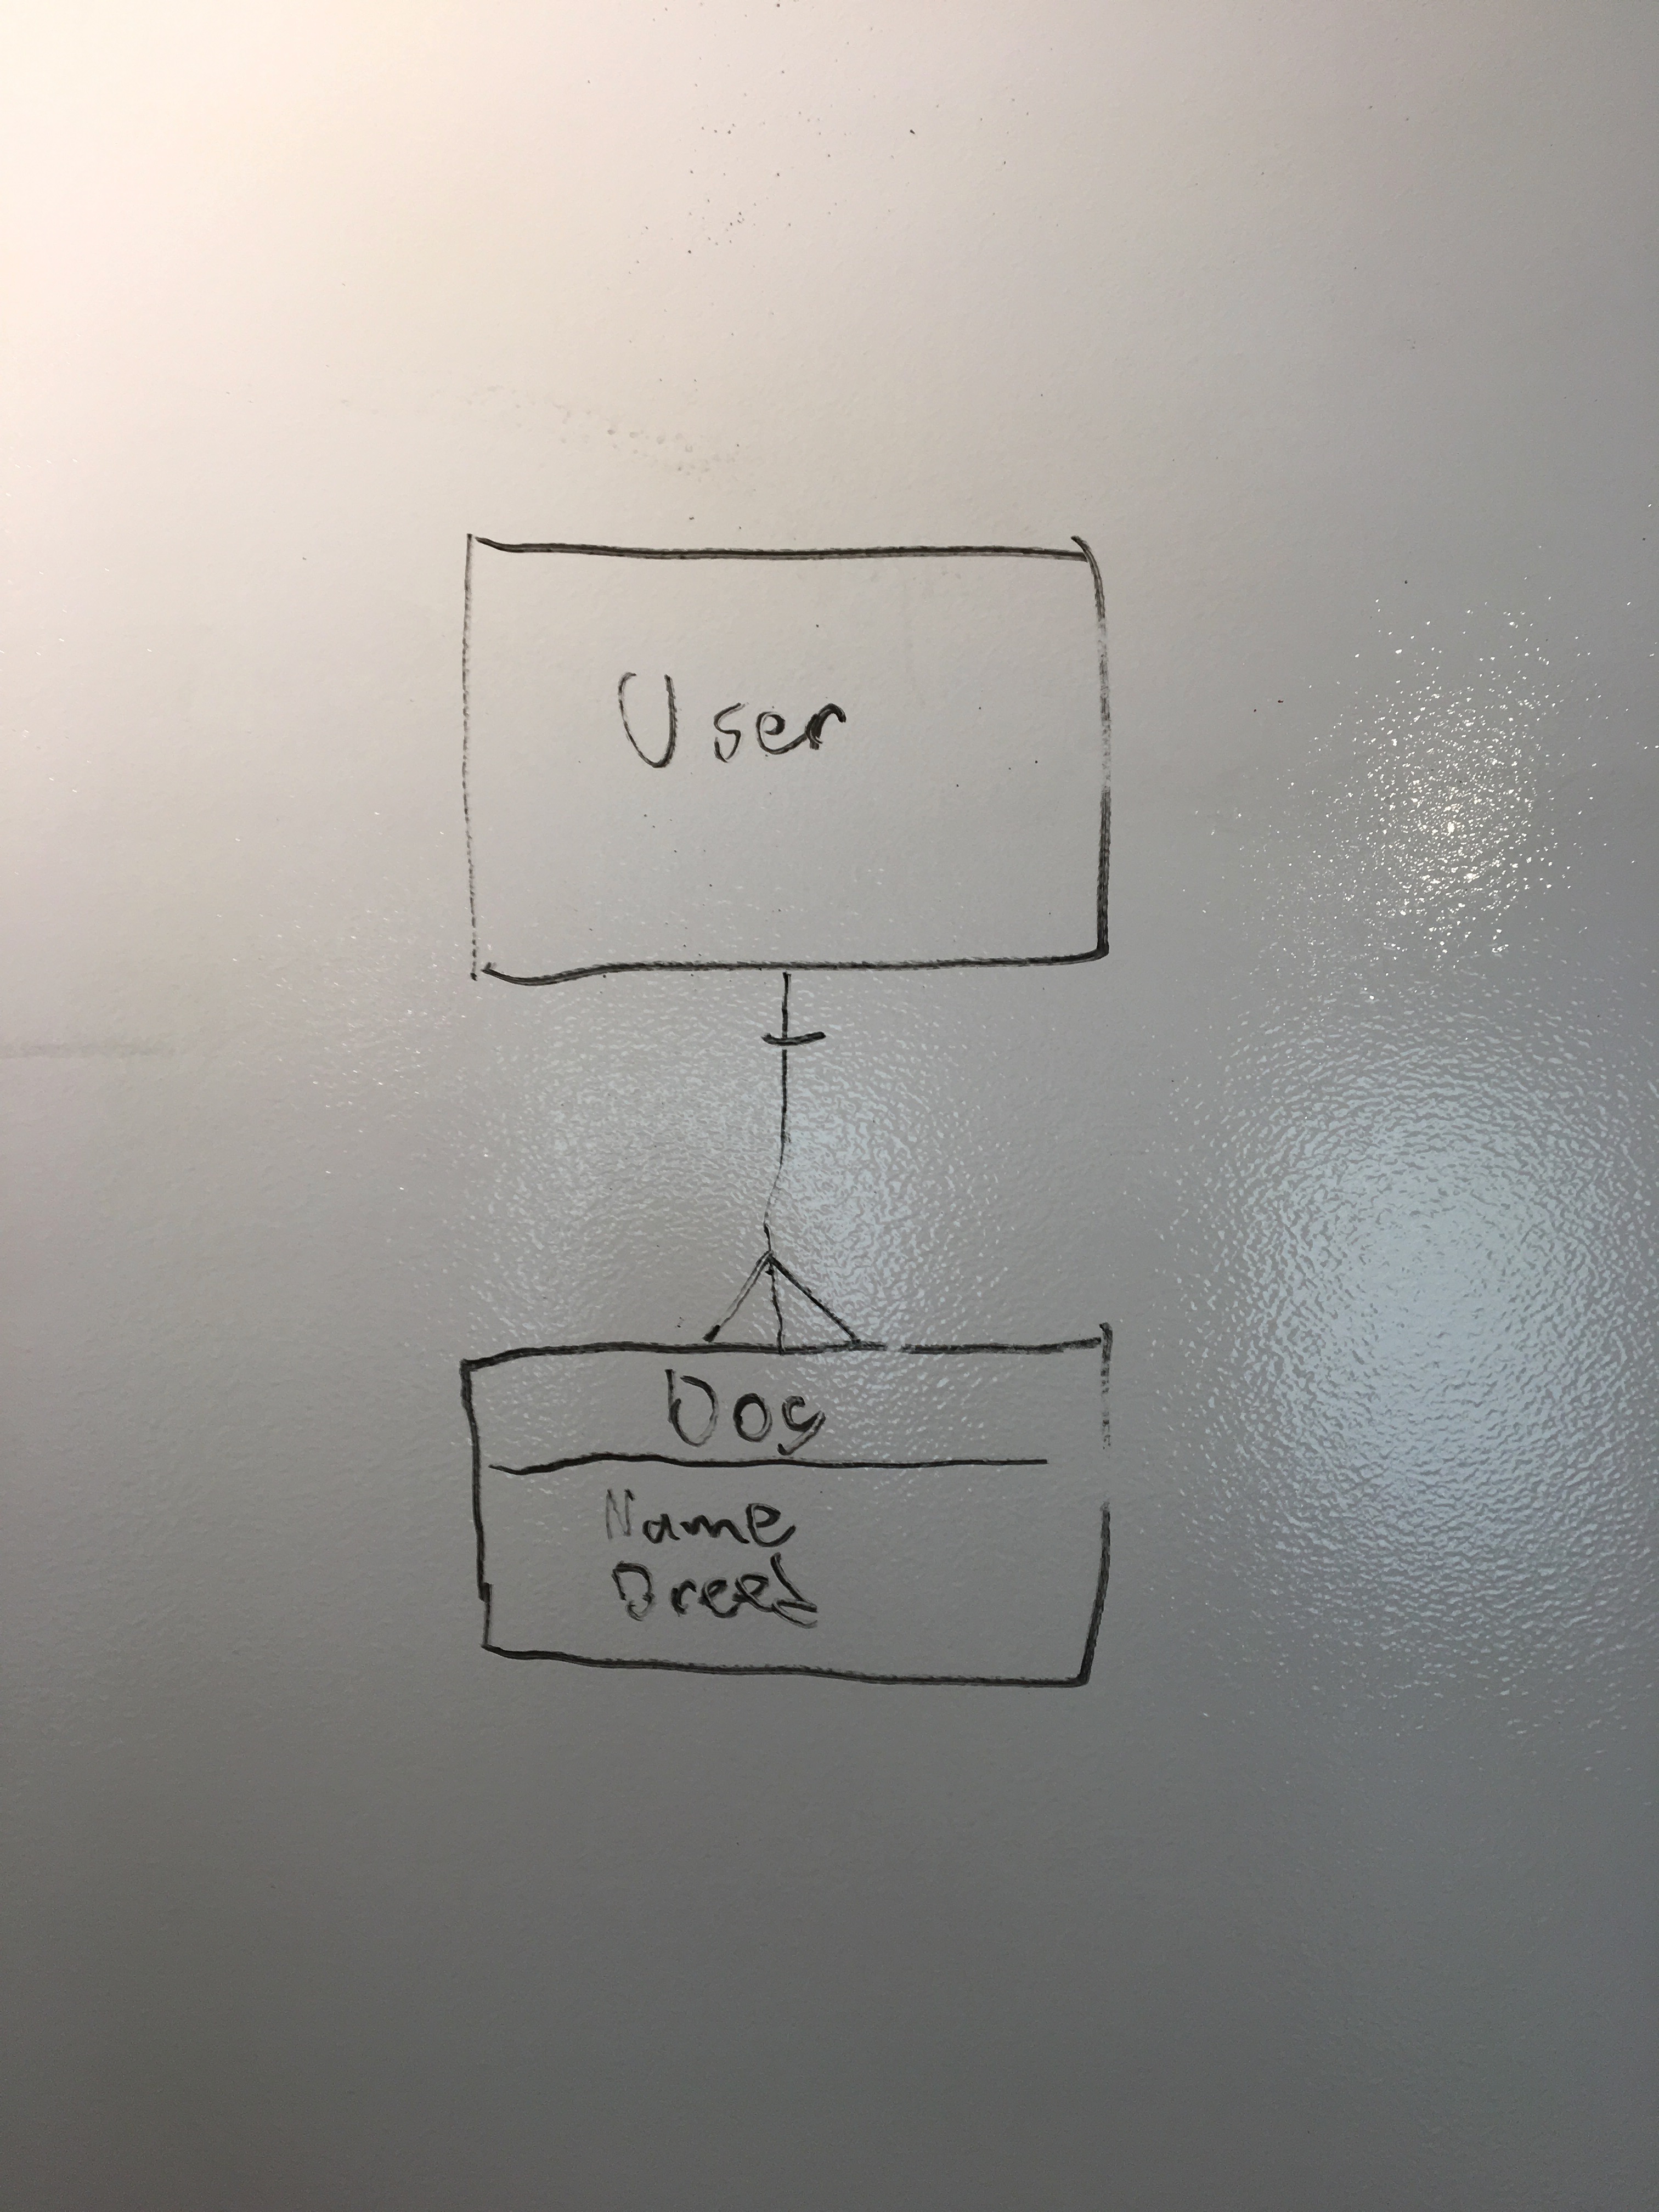 User
Dog
Name
Breed